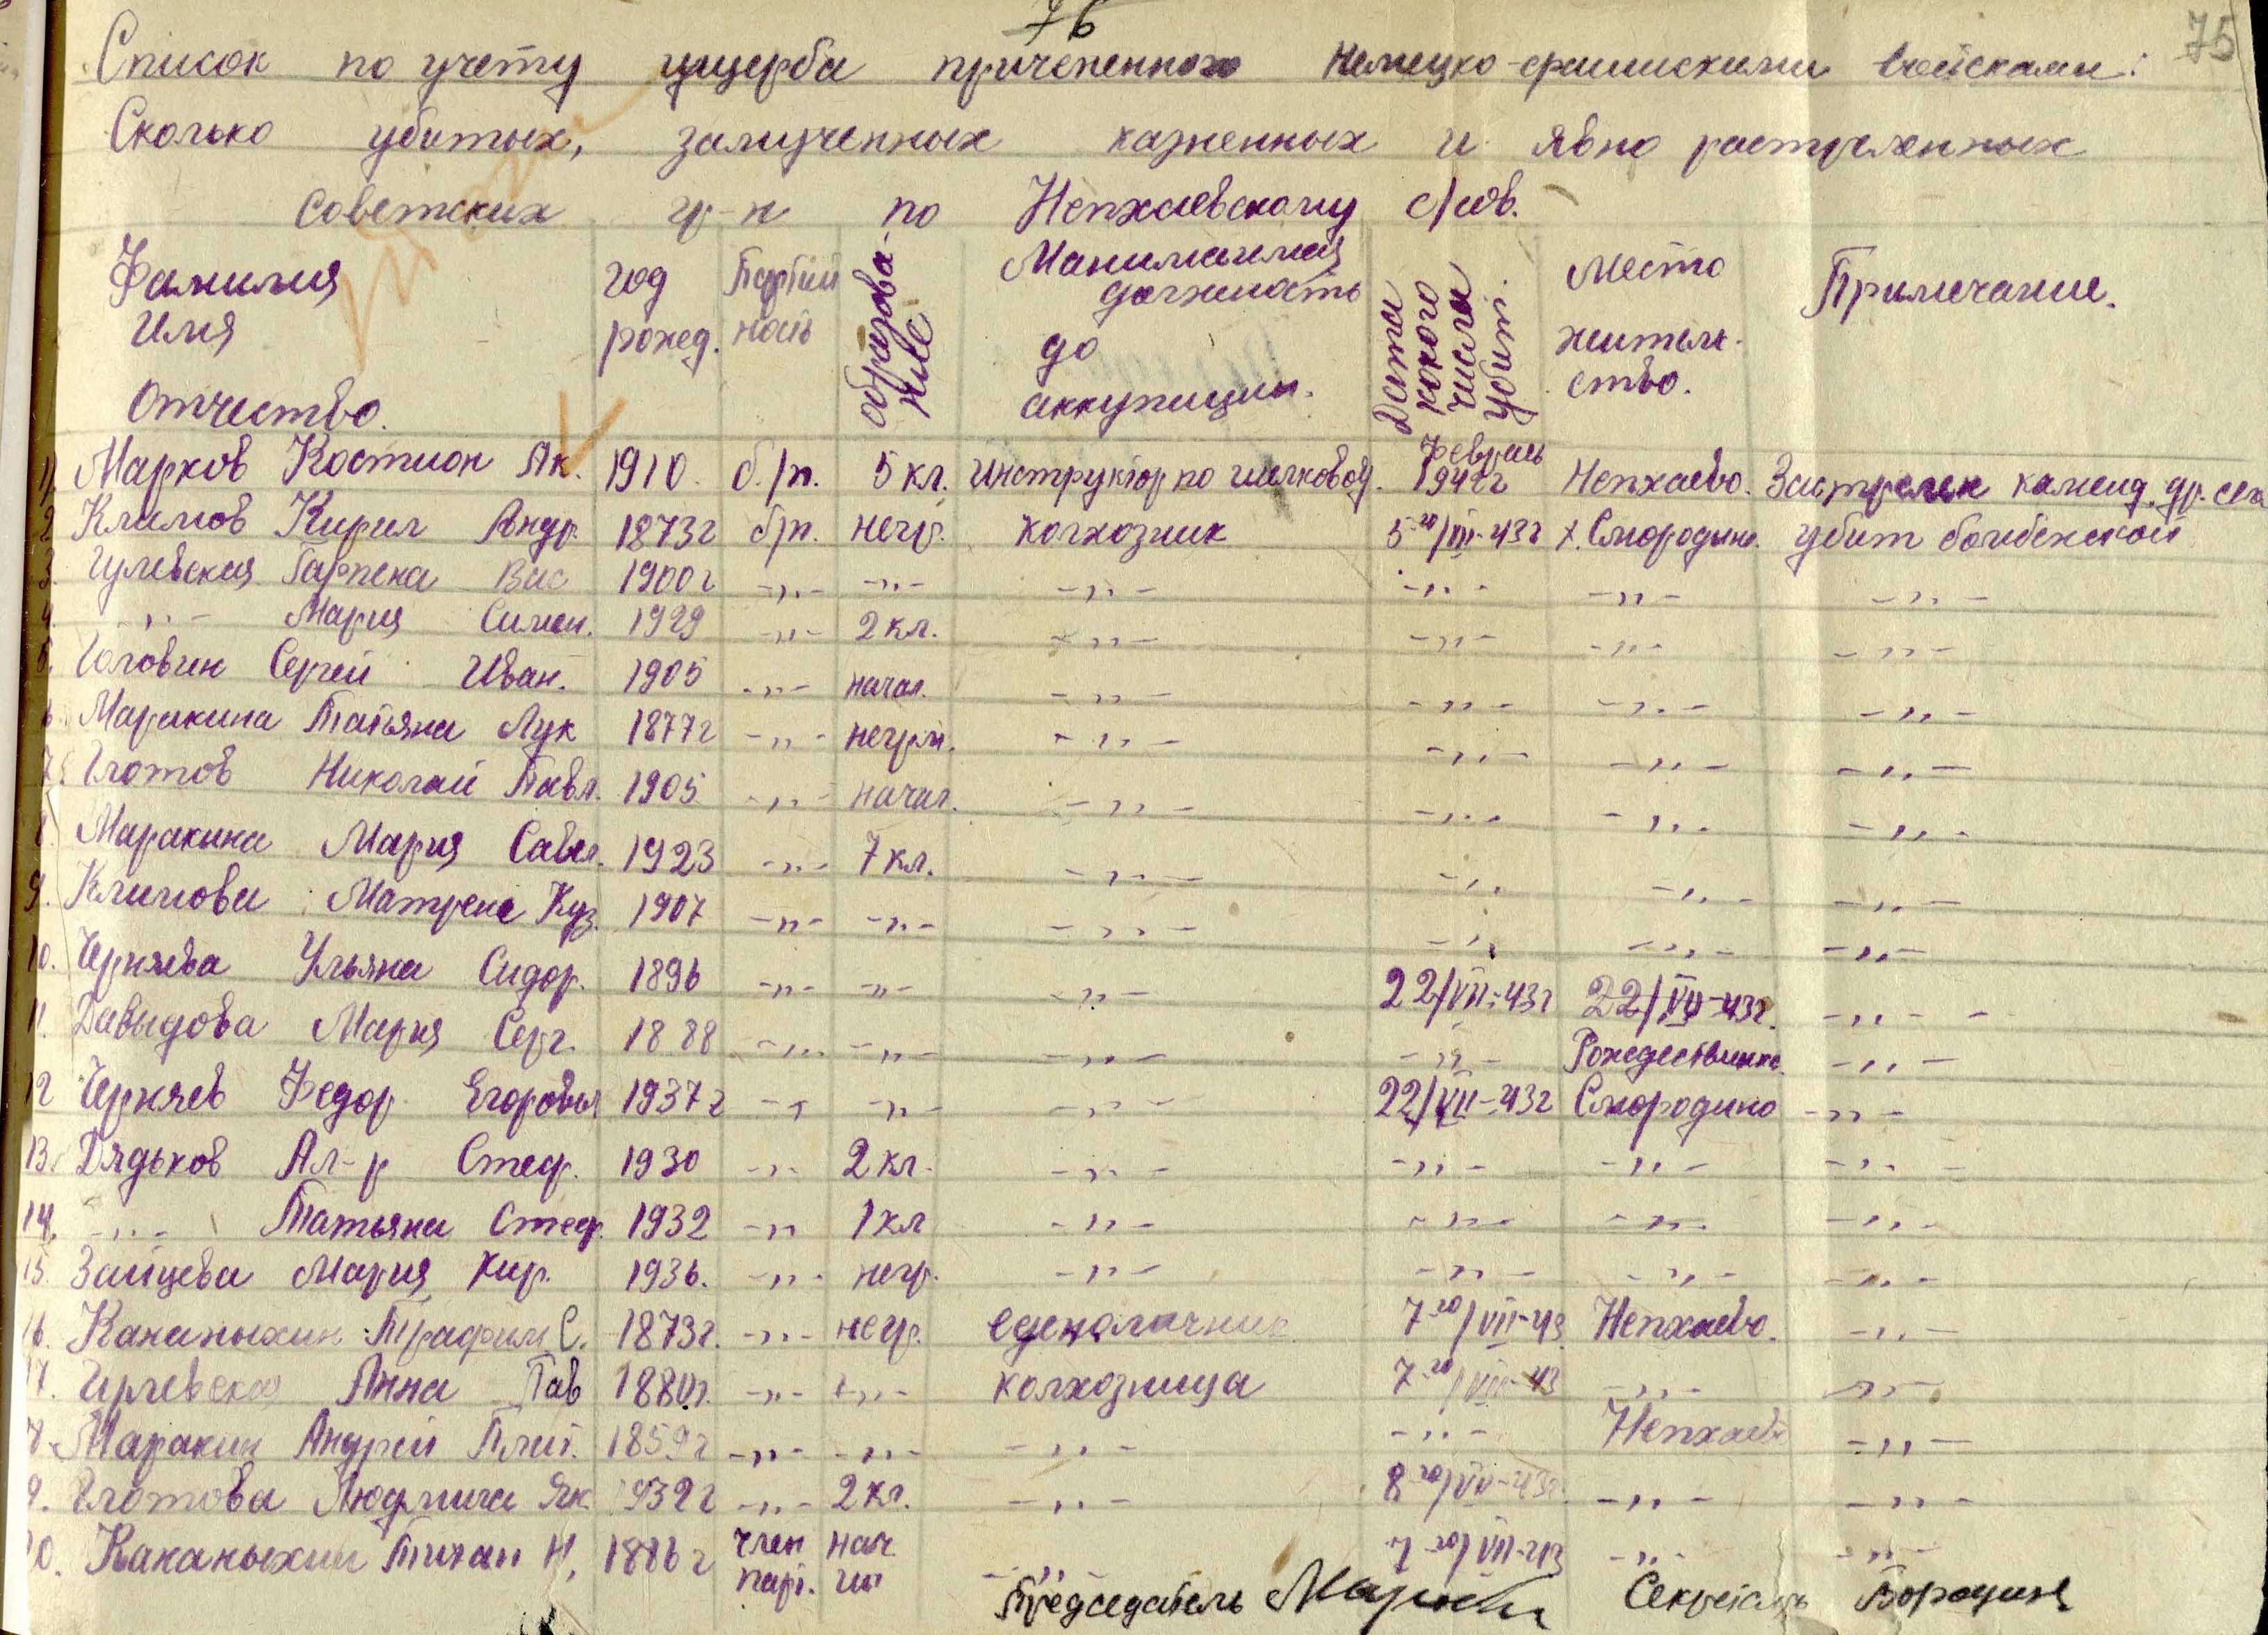 76
75
Список по учету ущерба причененного немецко-фашискими войсками:
Сколько убитых, замученных казненных и явно растреленных
советских гр-н по Непхаевскому с/сов.
Фамилия Имя Отчество. | год рожед. | Партий ность | образова- ние | Манимаемая должность до аккупации. | Дата какого числа убит. | Место жительство. | Примечание.
1) Марков Костион Як. 1910. б./п. 5 кл. Инструктор по шелковод. Февраль 1942г Непхаево. Застрелен каменд. др. села
2 Климов Кирил Андр. 1873г б/п. негр. колхозник 5-го/VII-43г х. Смородино. убит бомбежкой
3. Гулевская Гарпена Вас 1900г -„- -„- -„- -„- -„- -„-
4. -„- Мария Симен. 1929 -„- 2 кл. -„- -„- -„- -„-
5. Головин Сергей Иван. 1905 -„- начал. -„- -„- -„- -„-
6. Маракина Татьяна Лук 1877г -„- негрм. -„- -„- -„- -„-
7. Глотов Николай Павл. 1905 -„- начал. -„- -„- -„- -„-
8 Маракина Мария Савел. 1923 -„- 7 кл. -„- -„- -„- -„-
9. Климова Матрена Куз. 1907 -„- -„- -„- -„- -„- -„-
10. Черняева Ульяна Сидор. 1896 -„- -„- -„- 22/VII-43г 22/VII-43г. -„-
11. Давыдова Мария Серг. 1888 -„- -„- -„- -„- Рождественка. -„-
12 Черняев Федор Егоровы 1937г -„- -„- -„- 22/VII-43г Смородино -„-
13. Дядьков Ал-р Стеф. 1930 -„- 2 кл. -„- -„- -„- -„-
14. -„- Татьяна Стеф. 1932 -„- 1 кл -„- -„- -„- -„-
15. Зайцева Мария Кир. 1936. -„- негр. -„- -„- -„- -„-
16. Кананыхин Трафим С. 1873г. -„- негр. еденаличник 7-го/VII-43 Непхаево. -„-
17. Гулевская Анна Пав 1880г. -„- -„- колхозница 7-го/VII-43 -„- -„-
18. Маракин Андрей Плат. 1859г -„- -„- -„- -„- Непхаево -„-
19. Глотова Людмила Як. 1932г -„- 2 кл. -„- 8-го/VII-43г -„- -„-
20. Кананыхин Тихан Н. 1886г член парт. нач -„- 7-го/VII-43 -„- -„-
Председатель Марков Секретарь Бородина